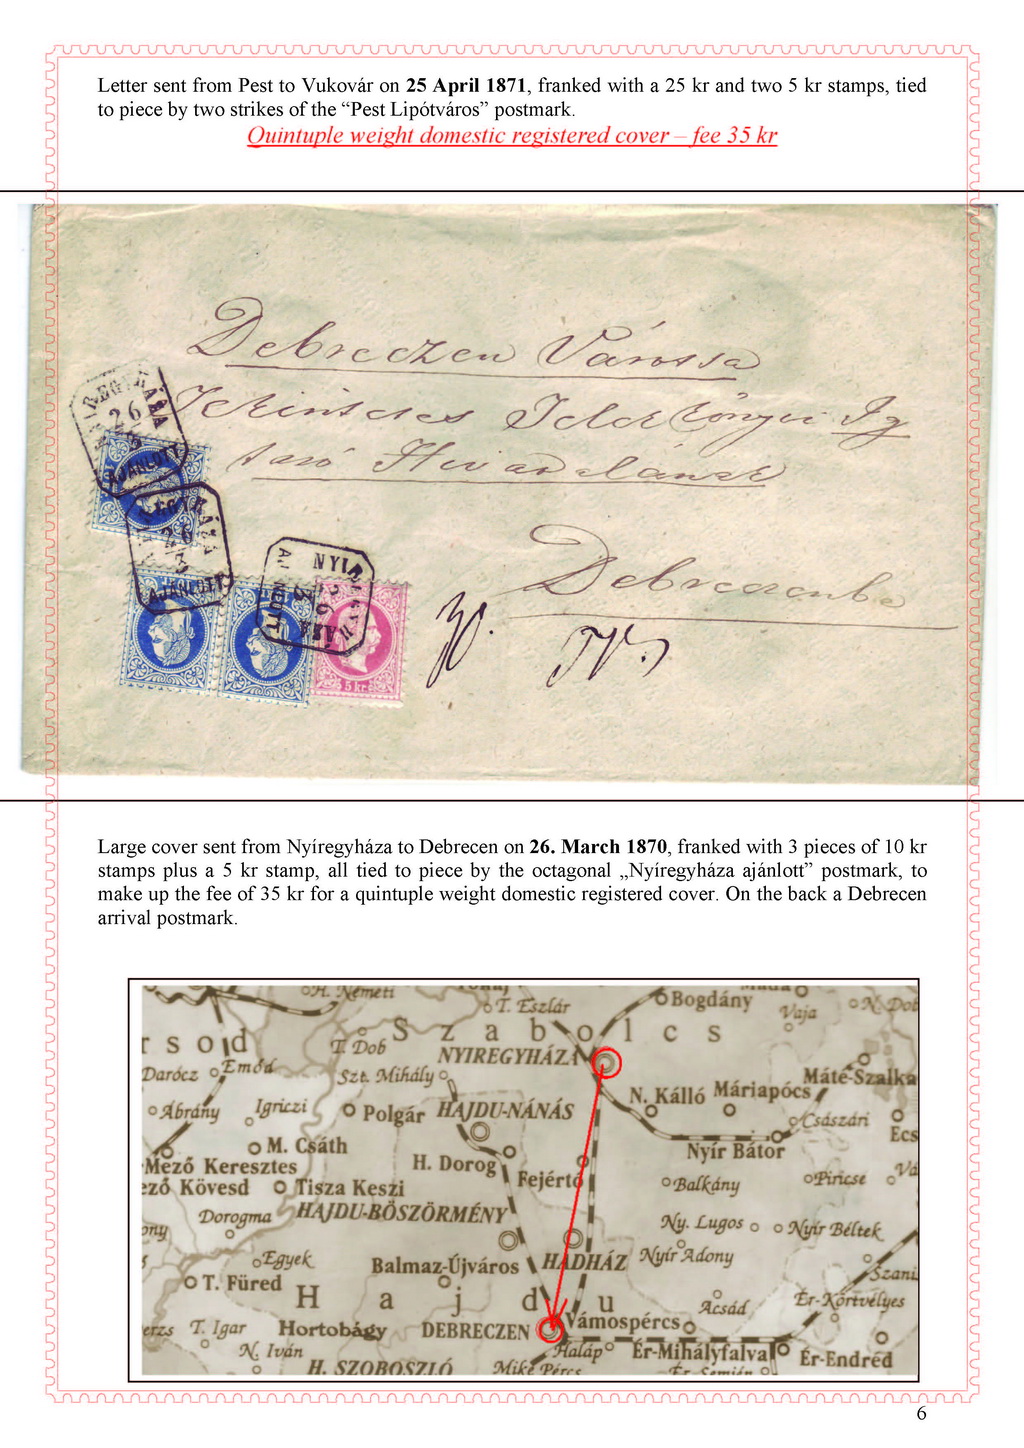 Letter sent from Pest to Vukovár on 25 April 1871, franked with a 25 kr and two 5 kr stamps, tied
to piece by two strikes of the “Pest Lipótváros” postmark.
Quintuple weight domestic registered cover – fee 35 kr
Debreczen Városa
Tekintetes
Hivatalának
Debreczenbe
NYIREGYHÁZA
26
3
AJÁNLOTT
NYIREGYHÁZA
26
3
AJÁNLOTT
NYIREGYHÁZA
26
3
AJÁNLOTT
5 kr
Large cover sent from Nyíregyháza to Debrecen on 26. March 1870, franked with 3 pieces of 10 kr
stamps plus a 5 kr stamp, all tied to piece by the octagonal „Nyíregyháza ajánlott” postmark, to
make up the fee of 35 kr for a quintuple weight domestic registered cover. On the back a Debrecen
arrival postmark.
Németi
T. Eszlár
Bogdány
Vaja
Szabolcs
T. Dob
NYIREGYHÁZA
Darócz
Emőd
Szt. Mihály
N. Kálló
Máriapócs
Máté-Szalka
Ábrány
Igriczi
Polgár
HAJDU-NÁNÁS
Császári
Ecs
M. Csáth
Nyír Bátor
Mező Keresztes
H. Dorog
Fejértó
Balkány
Piricse
ező Kövesd
Tisza Keszi
Dorogma
HAJDU-BÖSZÖRMÉNY
Ny. Lugos
Nyír Béltek
Egyek
Balmaz-Újváros
HADHÁZ
Nyír Adony
Szani
T. Füred
Hajdu
Acsád
Ér-Körtvélyes
T. Igar
Hortobágy
DEBRECZEN
Vámospércs
N. Iván
Haláp
Ér-Mihályfalva
Ér-Endréd
H. SZOBOSZLÓ
Mike Pércs
6